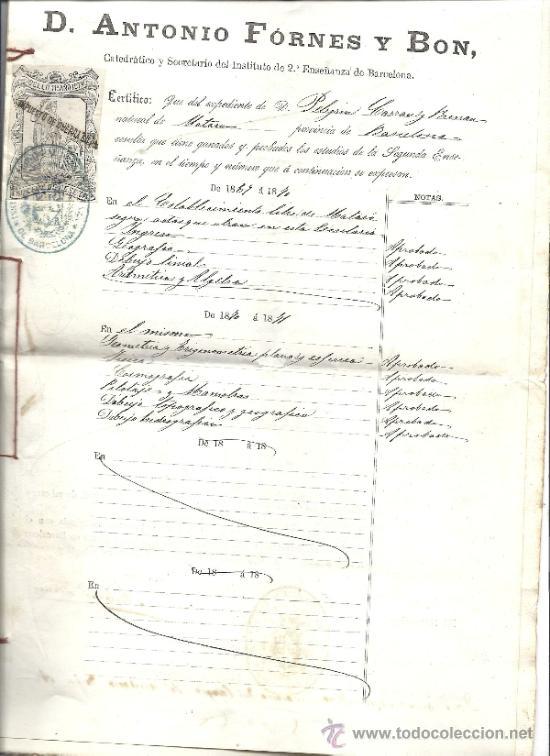 D. ANTONIO FÓRNES Y BON,
Catedrático y Secretario del Instituto de 2.ª Enseñanza de Barcelona.
Certifico: Que del expediente de D. Pelegrin y
natural de Mataró provincia de Barcelona
resulta que tiene ganados y probados los estudios de la Segunda Ense-
ñanza, en el tiempo y número que á continuacion se expresan.
De 1869 á 1870
NOTAS.
En el Establecimiento libre de Mataró
segun actas que obran en esta Secretaria
Ingreso Aprobado
Geografia Aprobado
Dibujo lineal Aprobado
Aritmética y Algebra Aprobado
De 1870 á 1871
En el mismo
Geometria y Trigonometria plana y esferica Aprobado
Fisica Aprobado
Cosmografia Aprobado
Pilotaje y Maniobras Aprobado
Dibujo topografico y geografico Aprobado
Dibujo hidrografico Aprobado
De 18 á 18
En
De 18 á 18
En
BARCELONA
todocoleccion.net